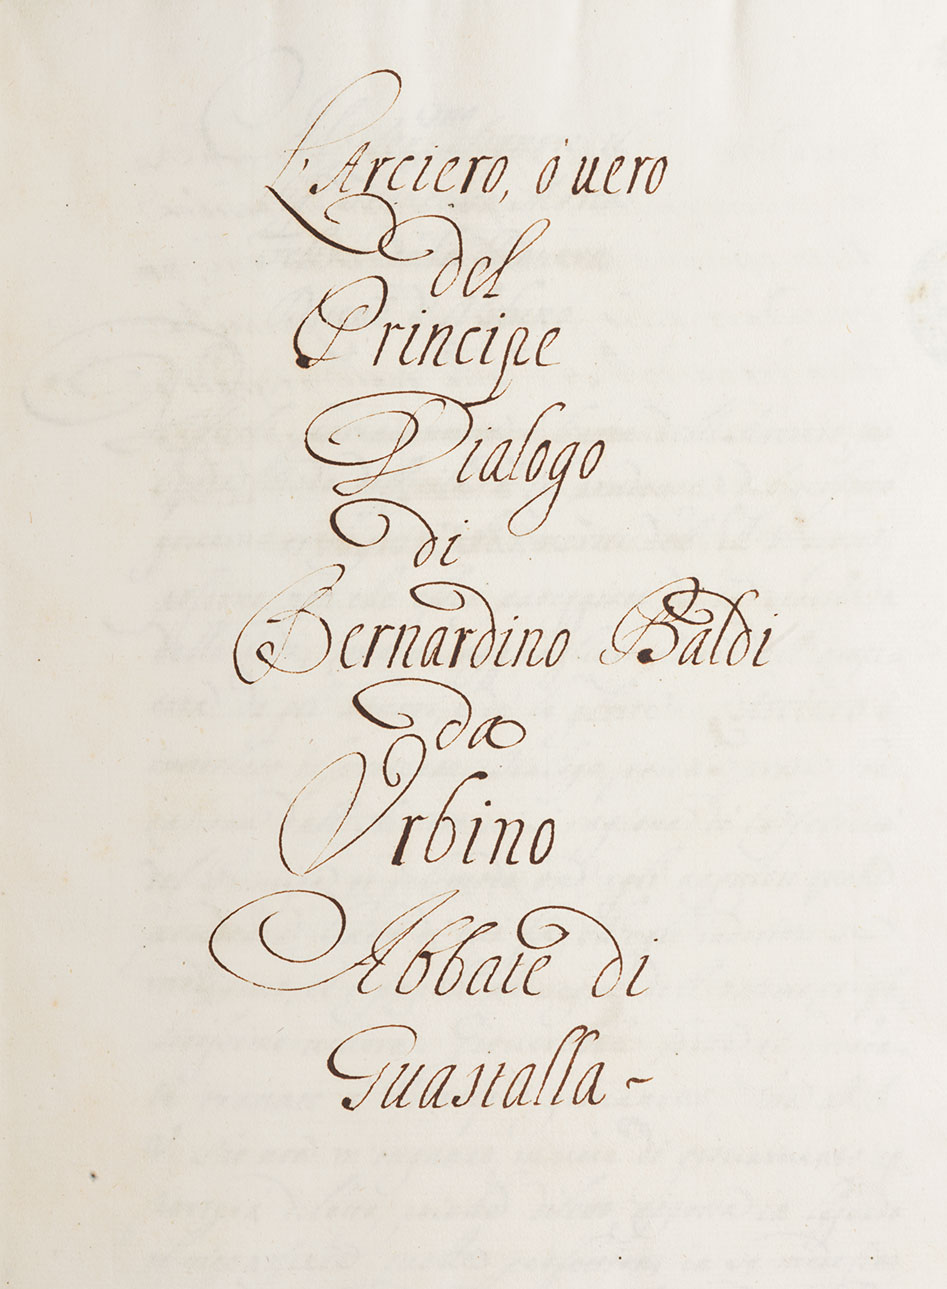 L'Arciero, ò uero
del
Principe
Dialogo
di
Bernardino Baldi
da
Vrbino
Abbate di
Guastalla~